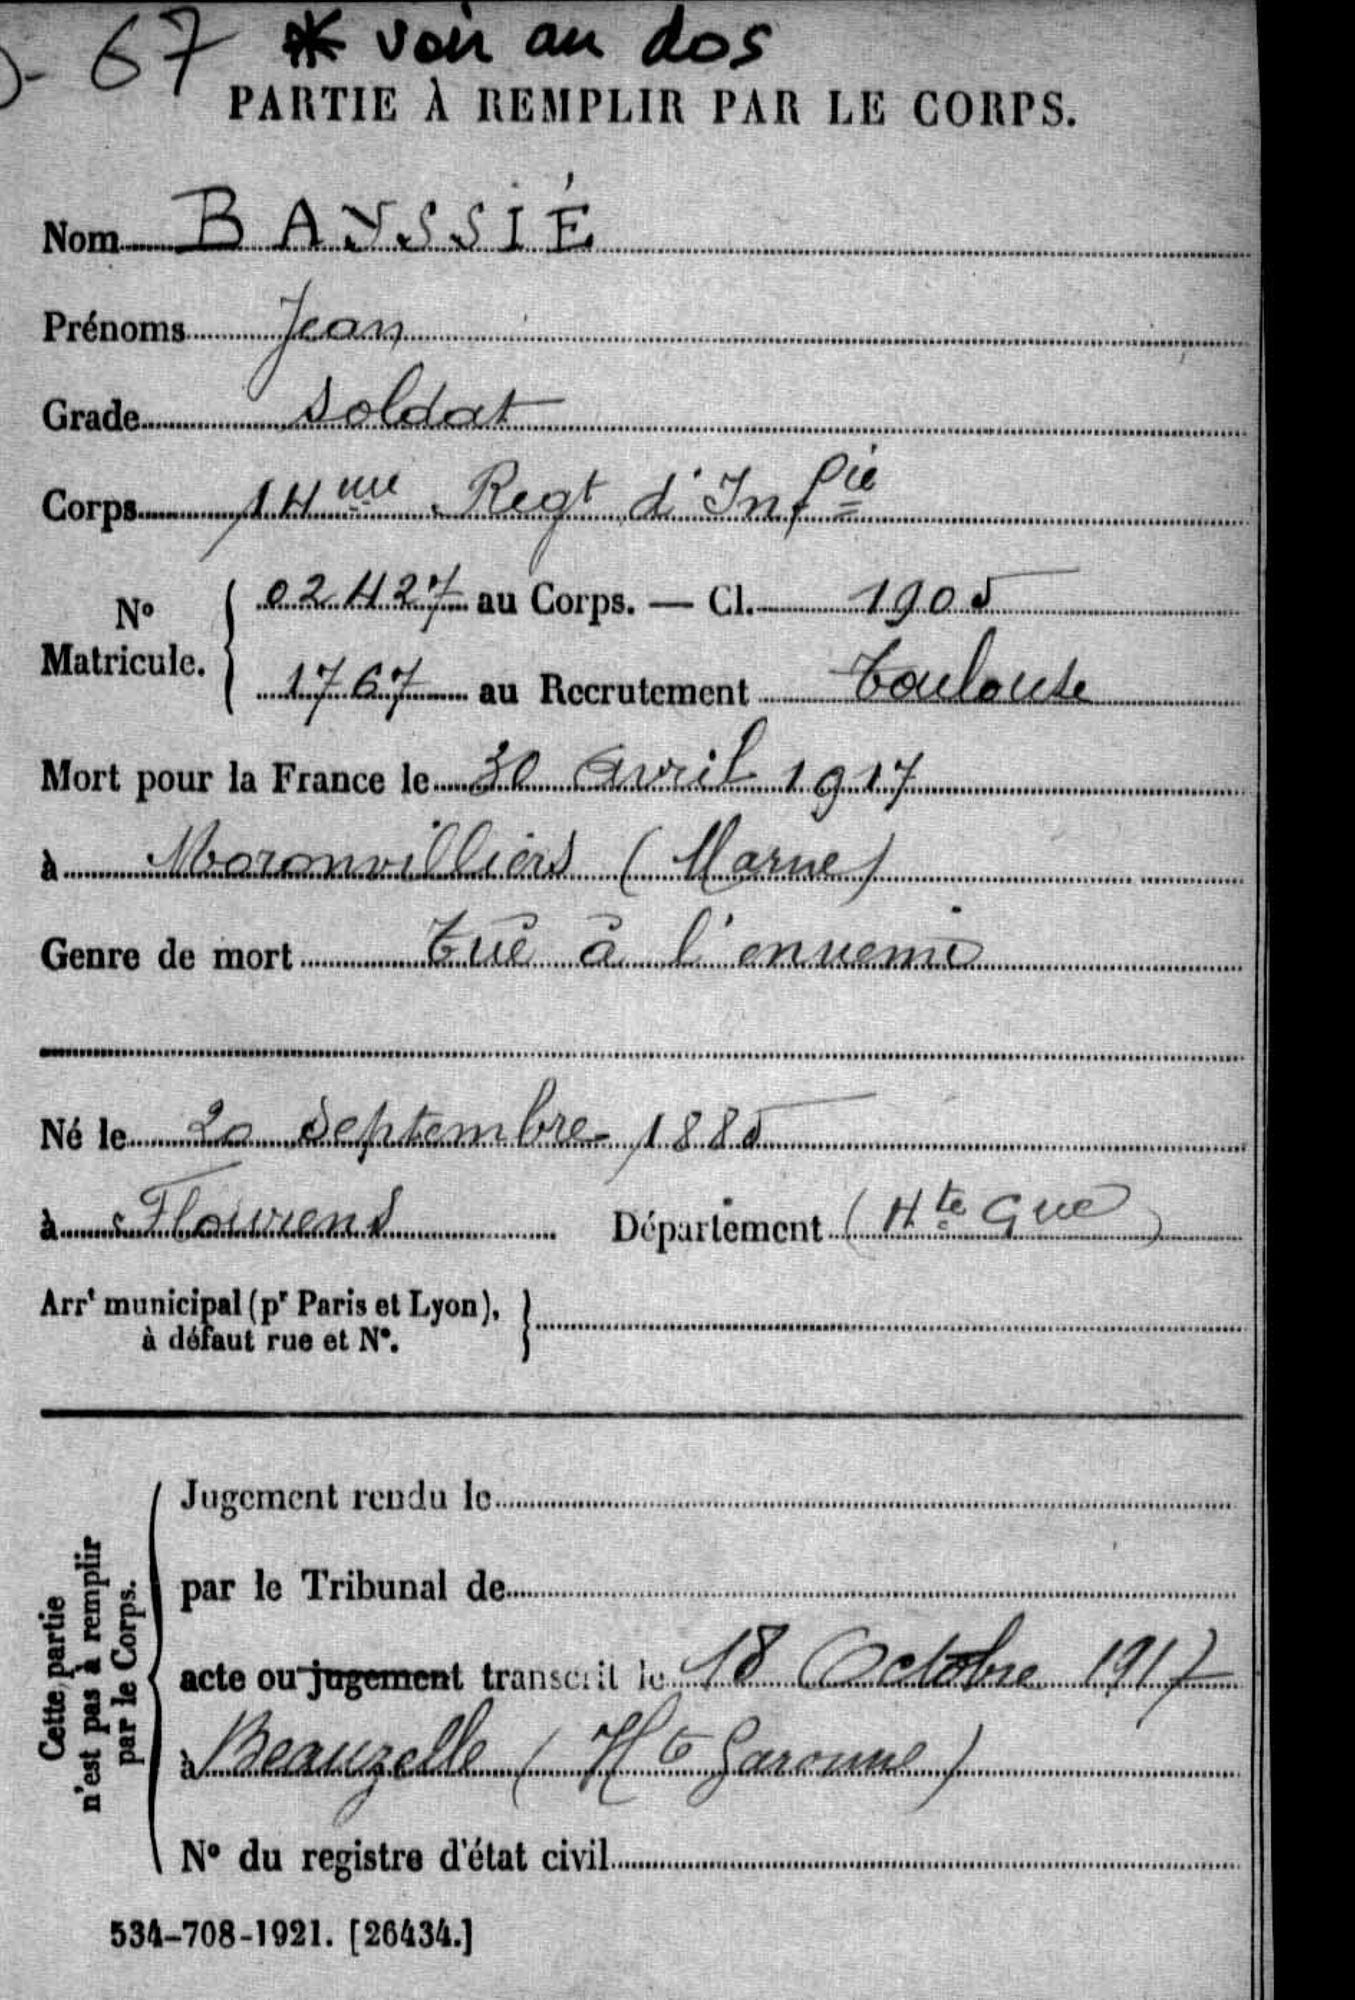 67 * voir au dos
PARTIE À REMPLIR PAR LE CORPS.
Nom BAYSSIÉ
Prénoms Jean
Grade Soldat
Corps 14me Regt d'Infie
No Matricule. { 02427 au Corps. — Cl. 1905
1767 au Recrutement Toulouse
Mort pour la France le 30 Avril 1917
à Moronvilliers (Marne)
Genre de mort Tué à l'ennemi
Né le 20 Septembre 1885
à Flourens Département (Hte Gne)
Arrt municipal (pr Paris et Lyon), }
à défaut rue et No.
Cette partie
n'est pas à remplir
par le Corps.
Jugement rendu le
par le Tribunal de
acte ou jugement transcrit le 18 Octobre 1917
à Beauzelle (Hte Garonne)
No du registre d'état civil
534-708-1921. [26434.]